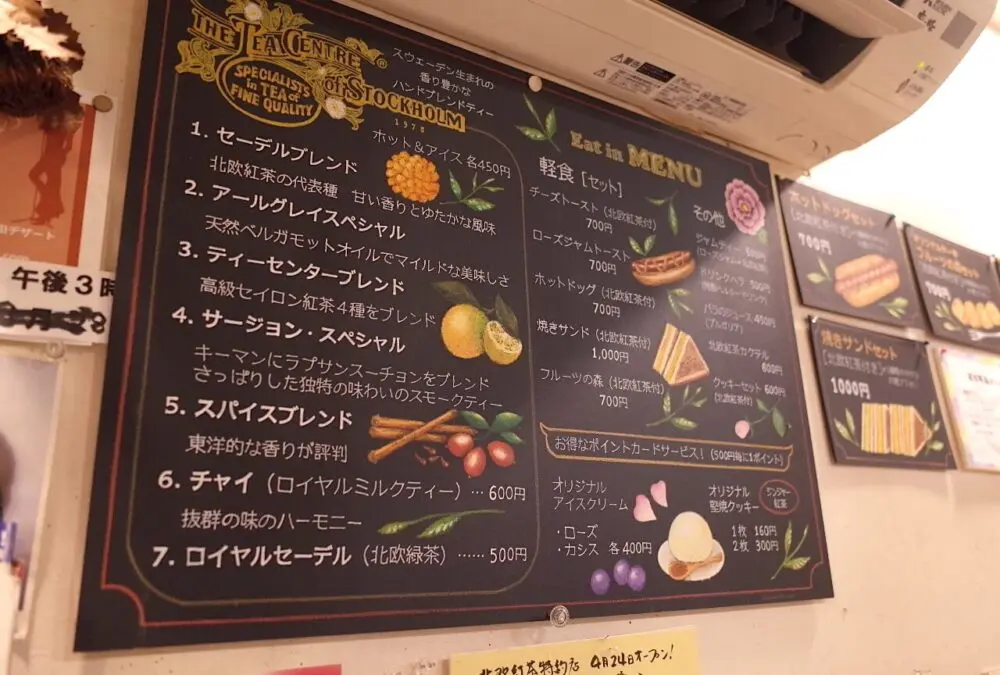 THE TEA CENTRE
OF STOCKHOLM
SPECIALISTS
in TEA of
FINE QUALITY
1978
スウェーデン生まれの
香り豊かな
ハンドブレンドティー
ホット＆アイス 各450円
1. セーデルブレンド
北欧紅茶の代表種 甘い香りとゆたかな風味
2. アールグレイスペシャル
天然ベルガモットオイルでマイルドな美味しさ
3. ティーセンターブレンド
高級セイロン紅茶４種をブレンド
4. サージョン・スペシャル
キーマンにラプサンスーチョンをブレンド
さっぱりした独特の味わいのスモークティー
5. スパイスブレンド
東洋的な香りが評判
6. チャイ（ロイヤルミルクティー）… 600円
抜群の味のハーモニー
7. ロイヤルセーデル（北欧緑茶）…… 500円
Eat in MENU
軽食［セット］
チーズトースト（北欧紅茶付）
700円
ローズジャムトースト
700円
ホットドッグ（北欧紅茶付）
700円
焼きサンド（北欧紅茶付）
1,000円
フルーツの森（北欧紅茶付）
700円
その他
バラのジュース 450円
（ブルガリア）
北欧紅茶カクテル
600円
クッキーセット 600円
（北欧紅茶付）
お得なポイントカードサービス！（500円毎に1ポイント）
オリジナル
アイスクリーム
・ローズ
・カシス 各400円
オリジナル
堅焼クッキー
ジンジャー
紅茶
1枚 160円
2枚 300円
ホットドッグセット
700円
700円
焼きサンドセット
1000円
デザート
午後３時
北欧紅茶特約店 4月24日オープン！